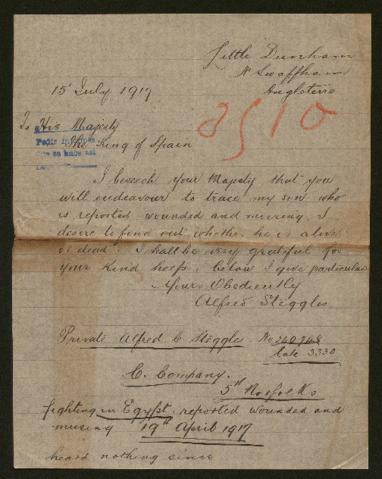 Little Dunham
Nr Swaffham
Angleterre
15 July 1917
8510
To His Majesty
The King of Spain
I beseech your Majesty that you
will endeavour to trace my son who
is reported wounded and missing. I
desire to find out whether he is alive
or dead. I shall be very grateful for
your kind help, below I give particulars
Yours Obediently
Alfred Steggles
Private Alfred C Steggles No
late 3330
C. Company.
5th Norfolks
fighting in Egypt. reported wounded and
missing 19th April 1917
heard nothing since